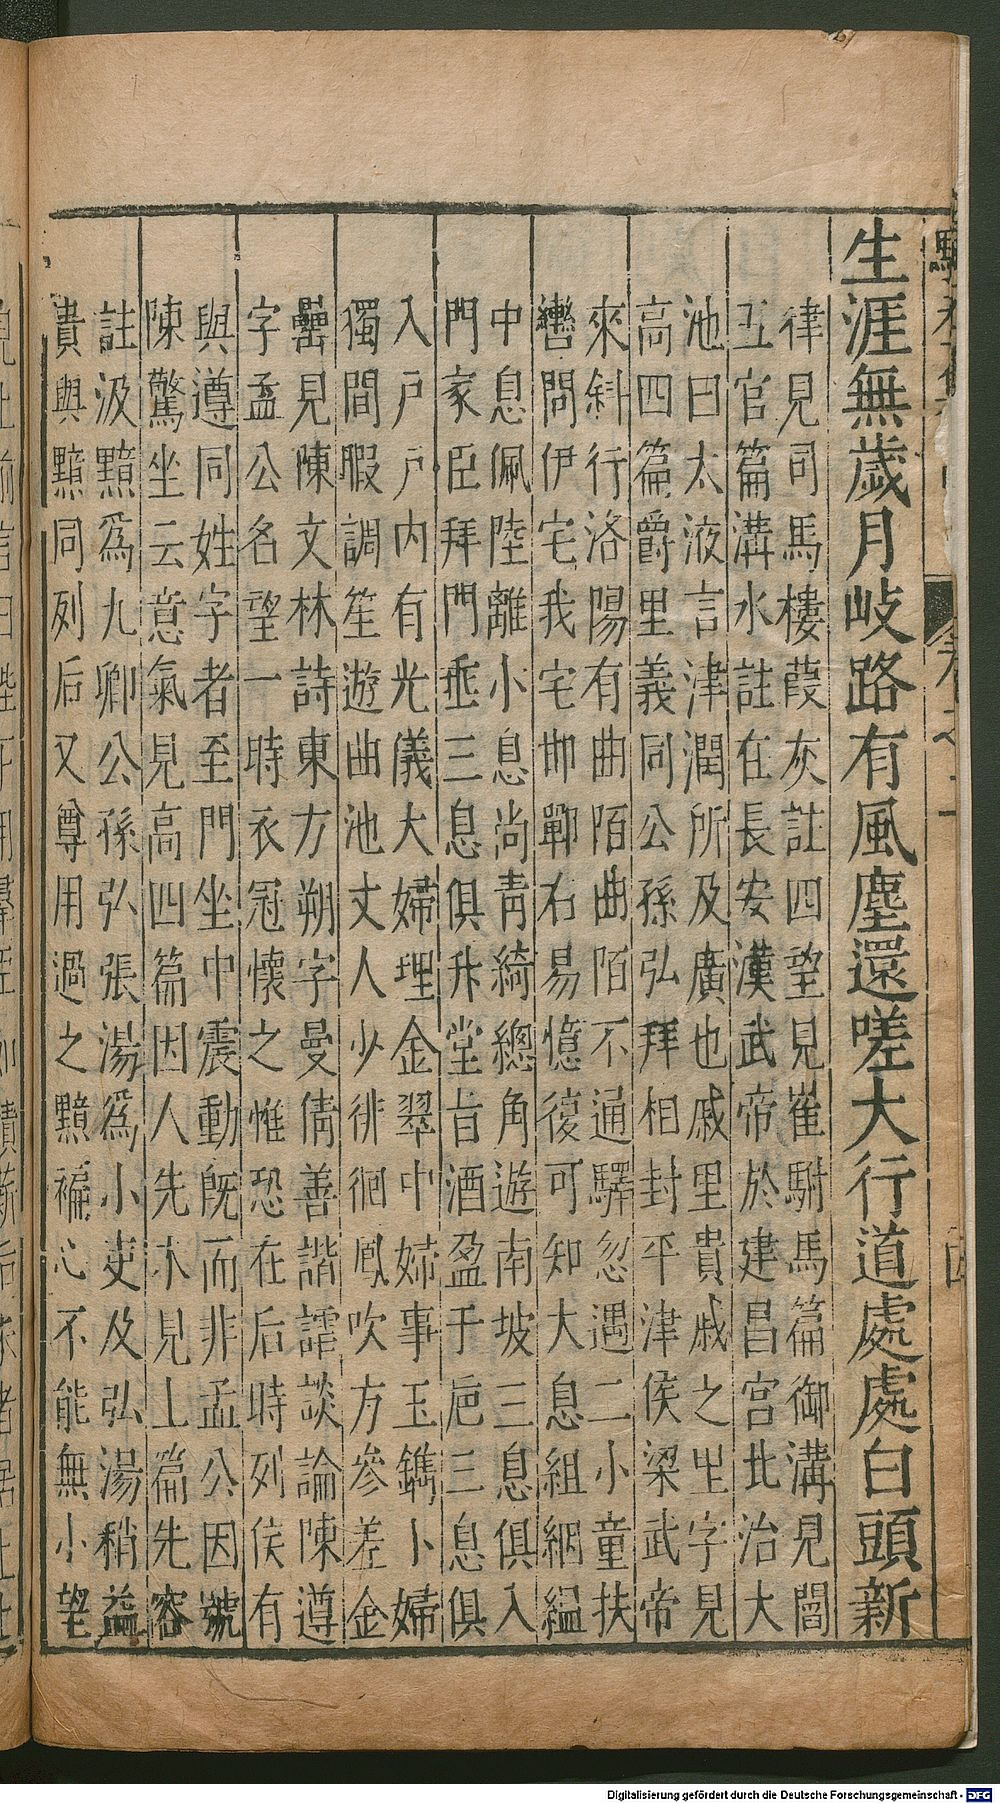 生涯無歲月岐路有風塵還嗟大行道處處白頭新
律見司馬樓葭灰註四望見崔駙馬篇御溝見閻
五官篇溝水註在長安漢武帝於建昌宮北治大
池曰太液言津潤所及廣也戚里貴戚之里字見
高四篇爵里義同公孫弘拜相封平津侯梁武帝
來斜行洛陽有曲陌曲陌不通驛忽遇二小童扶
轡問伊宅我宅邯鄲右易憶復可知大息組綱縕
中息佩陸離小息尚靑綺總角遊南坡三息俱入
門家臣拜門垂三息俱升堂旨酒盈于巵三息俱
入戶戶內有光儀大婦理金翠中婦事玉鐫小婦
獨間暇調笙遊曲池丈人少徘徊鳳吹方參差金
罍見陳文林詩東方朔字曼倩善諧謔談論陳遵
字孟公名望一時衣冠懷之惟恐在后時列侯有
與遵同姓字者至門坐中震動旣而非孟公因號
陳驚坐云意氣見高四篇因人先木見上篇先容
註汲黯爲九卿公孫弘張湯爲小吏及弘湯稍益
貴與黯同列后又尊用過之黯褊心不能無小望
Digitalisierung gefördert durch die Deutsche Forschungsgemeinschaft - DFG